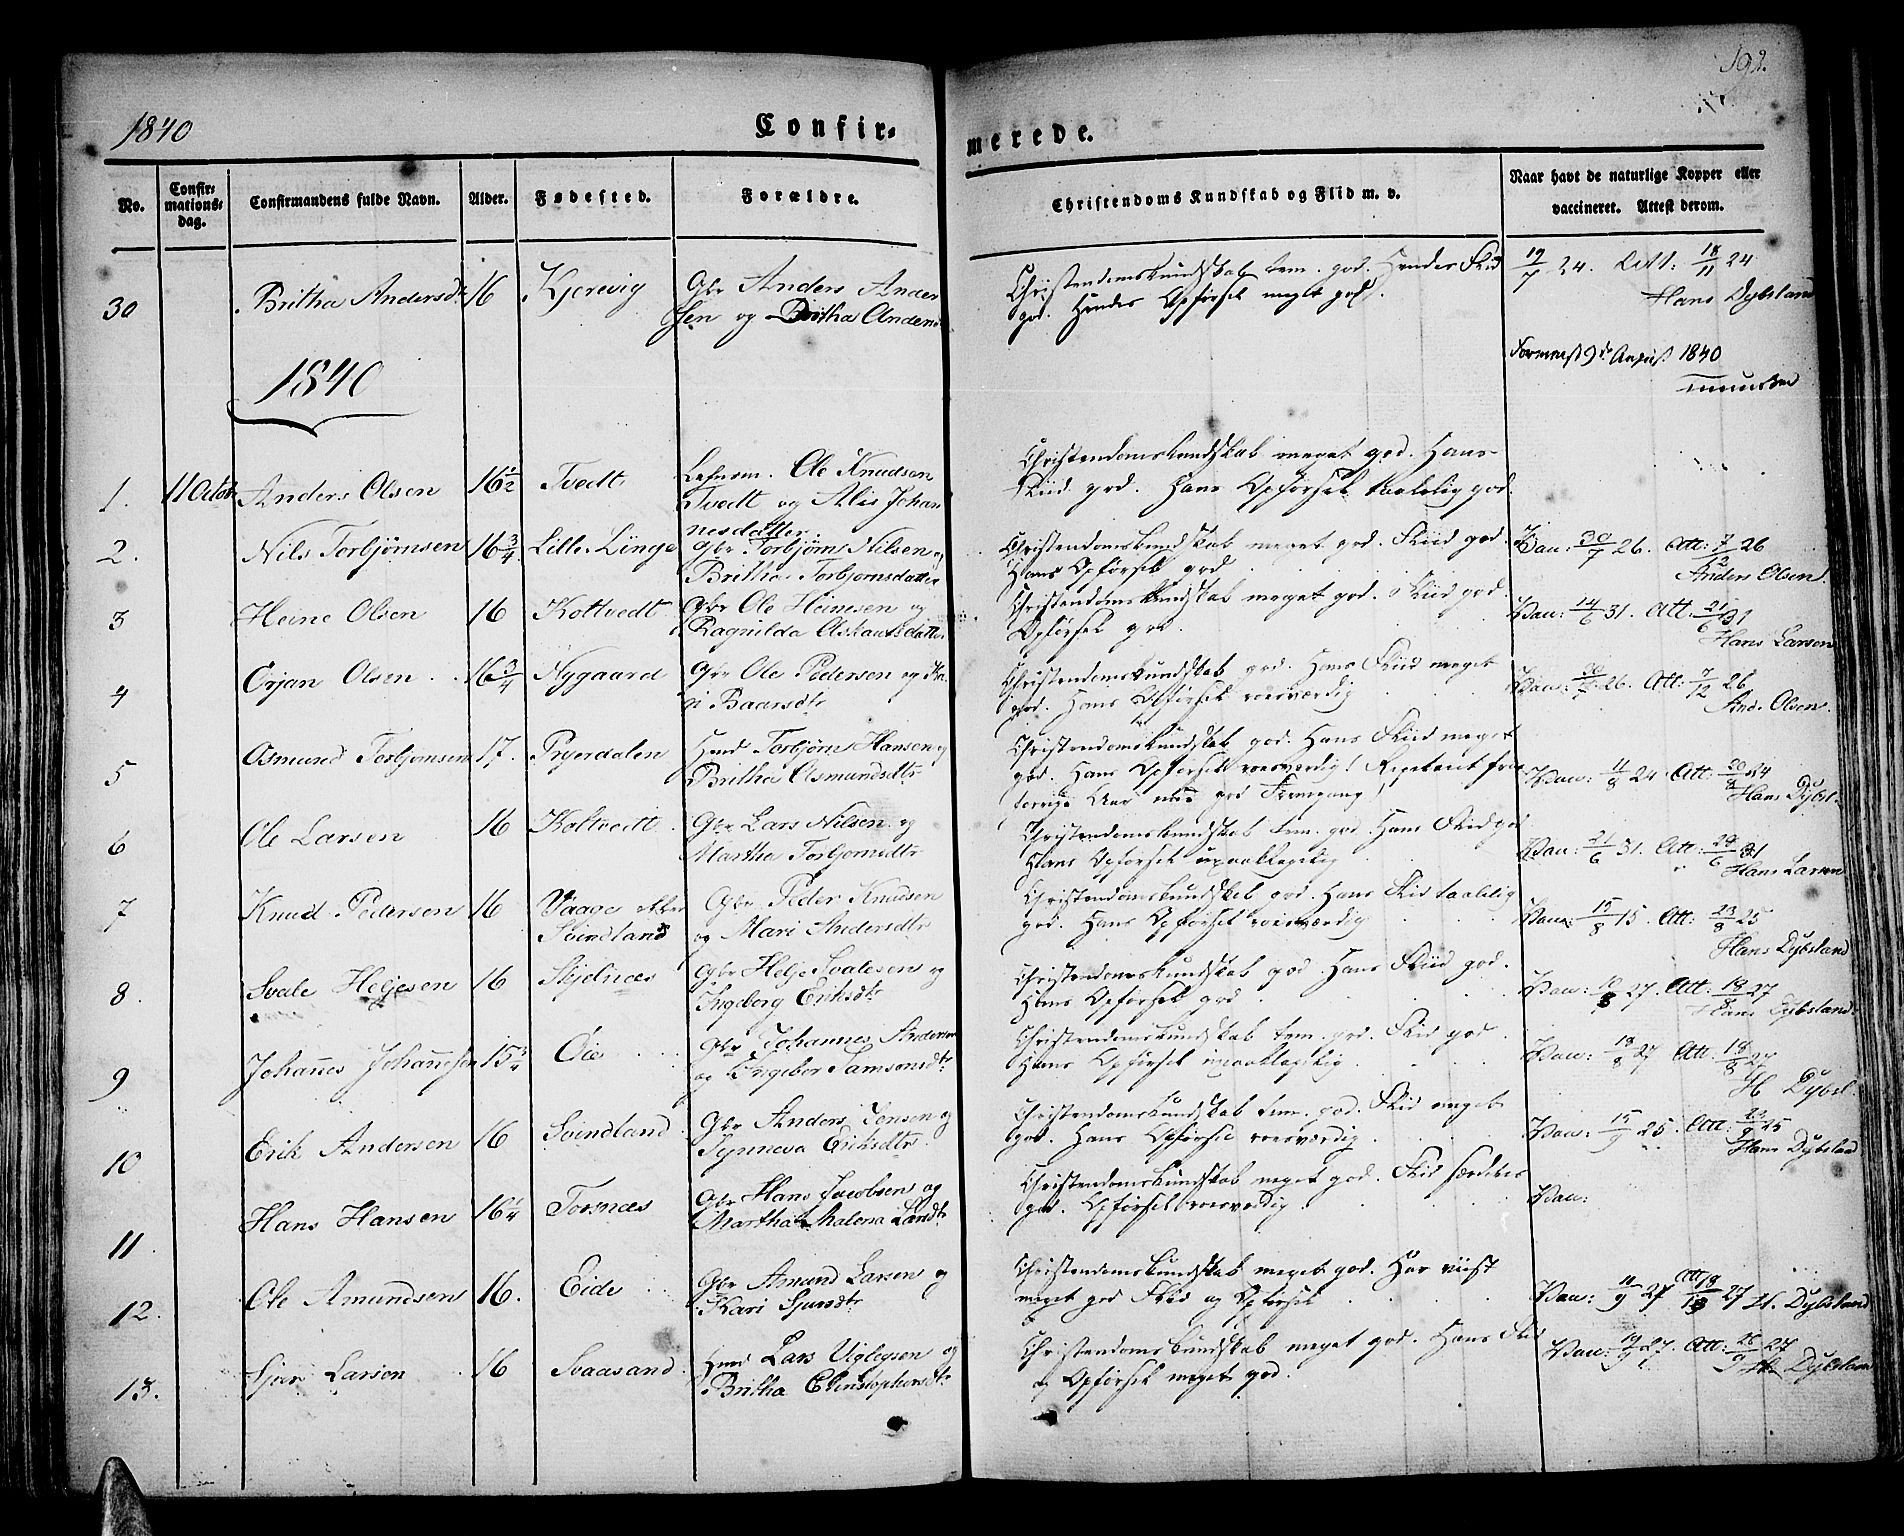 192.
1840
Confir-
merede.
No.
Confir-
mations-
dag.
Confirmandens fulde Navn.
Alder.
Fødested.
Forældre.
Christendoms Kundskab og Flid m. v.
Naar havt de naturlige Kopper eller
vaccineret. Attest derom.
30
Britha Andersdt
16
Kjerevig
Gbr Anders Ander
sen og Britha Anders
Christendomskundskab tem. god. Hendes Fliid
god. Hendes Opførsel meget god.
19/7 24. Att: 18/11 24
Hans Dybsland
August 1840
1840
1.
11 Octob
Anders Olsen
16 1/2
Tvedt
Ole Knudsen
Tvedt og Alis Johan
nesdatter
Christendomskundskab meget god. Hans
Fliid god. Hans Opførsel taalelig god.
2.
Nils Torbjørnsen
16 3/4
Lille Linge
Gbr Torbjørn Nilsen og
Britha Torbjørnsdatter
Christendomskundskab meget god. Fliid god.
Hans Opførsel god
Vac: 30/7 26. Att: 26
Anders Olsen.
3
Heine Olsen
16
Koltvedt
Gbr Ole Heinesen og
Ragnilda
Christendomskundskab meget god. Fliid god.
Opførsel god.
Vac: 14/6 31. Att: 21/6 31
Hans Larsen
4
Ørjan Olsen
16 3/4
Nygaard
Gbr Ole Pedersen og Ka
ri Baarsdt
Christendomskundskab god. Hans Fliid meget
god. Hans Opførsel roesværdig
Vac: 26. Att: 7/12 26
And. Olsen.
5
Osmund Torbjørnsen
17.
Pryerdalen
Huusmd Torbjørn Hansen og
Britha Osmundsdtr
Christendomskundskab god. Hans Fliid meget
god. Hans Opførsel roesværdig! Repetent fra
forrige Aar med god Fremgang!
Vac: 11/8 24 Att: 24
Hans Dybsl.
6
Ole Larsen
16
Koltvedt.
Gbr Lars Nilsen og
Martha Torbjørnsdtr
Christendomskundskab tem. god. Hans Fliid god
Hans Opførsel upaaklagelig
Vac: 21/6 31. Att: 31
Hans Larsen
7
Knud Pedersen
16
Vaage eller
Svindland
Gbr Peder Knudsen
og Mari Andersdtr
Christendomskundskab god. Hans Fliid taalelig
god. Hans Opførsel roesværdig
Vac: 15/8 15. Att: 23/8 25
Hans Dybsland
8
Svale Heljesen
16
Skjelnæs
Gbr Helje Svalesen og
Ingeborg Eriksdtr
Christendomskundskab god. Hans Fliid god.
Hans Opførsel god
Vac: 10/8 27. Att: 18/8 27
Hans Dybsland.
9
Johannes Johannesen
15 3/4
Øie
Gbr Johannes
og Ingebor Samsonsdtr
Christendomskundskab tem. god. Fliid god.
Hans Opførsel upaaklagelig
Vac: 18/8 27 Att: 18/8 27
H Dybsl.
10
Erik Andersen
16
Svindland
Gbr Anders Jensen og
Synneva Eriksdtr.
Christendomskundskab tem. god. Fliid meget
god. Hans Opførsel roesværdig.
Vac: 15/9 25. Att: 25
Hans Dybsland
11
Hans Hansen
16 1/4
Torsnæs
Gbr Hans Jacobsen og
Martha Malena
Christendomskundskab meget god. Fliid særdeles
god. Opførsel roesværdig
Vac:
12.
Ole Amundsen
16.
Eide
Gbr Amund Larsen og
Kari Sjursdtr
Christendomskundskab meget god. Har viist
meget god Fliid og Opførsel
Vac: 11/9 27 Att 27 H. Dybsland
13.
Sjur Larsen
16
Svaasand
Huusmd Lars Viglegsen og
Britha Christophersdtr
Christendomskundskab meget god. Hans Fliid
og Opførsel meget god.
Vac: 19/9 27. Att: 27
H. Dybsland